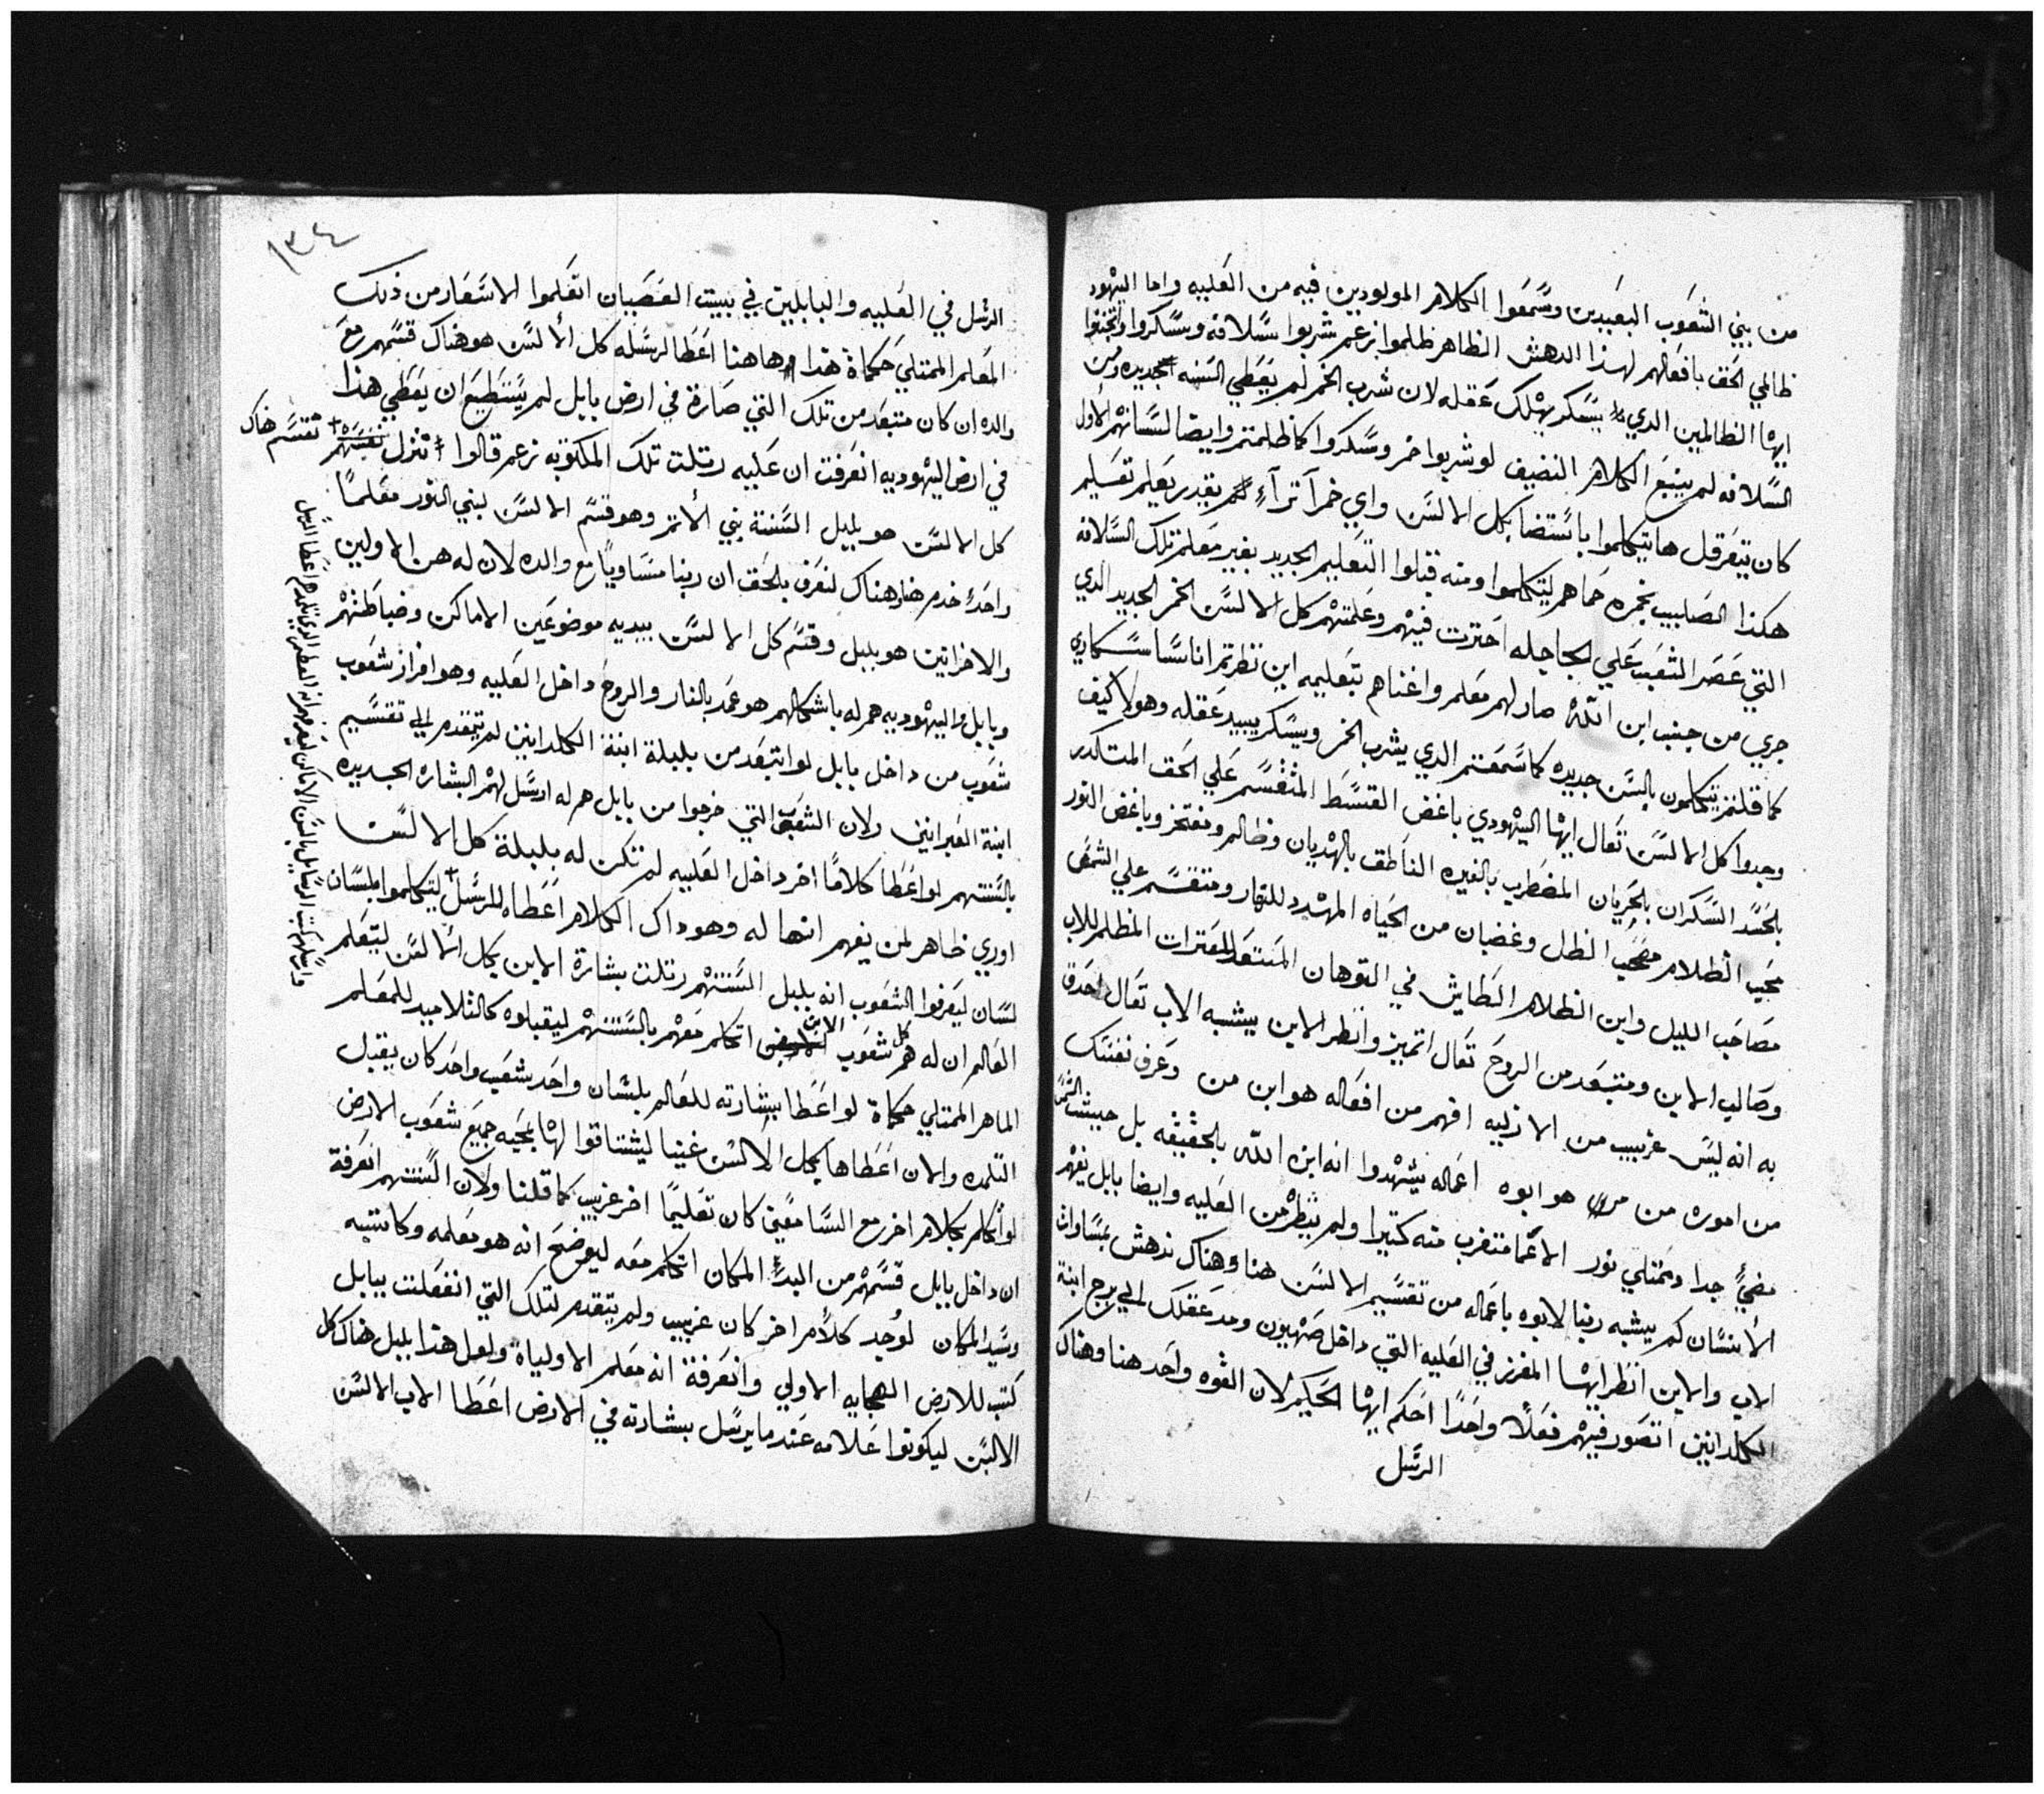 من بني الشعوب البعيدين وسمعوا الكلام المولودين فيه من العليه واما اليهود
ظالمي الحق بافعالهم لهذا الدهش الظاهر ظلموا بزعم شربوا سلافه وسكروا
ايها الظالمين الدي يسكر يهلك عقله لان شرب الخمر لم يعطي السنه جديده ومن
السلافه لم ينبع الكلام النضيف لو شربوا خمر وسكروا كما ظلمتم وايضا لسانهم الاول
كان يتعرقل ها يتكلموا باستضا بكل الالسن واي خمرا تراء لم يقدر يعلم تعسليم
هكذا الصليب بخمره حماهم ليتكلموا ومنه قبلوا التعليم الجديد بغير معلم تلك السلافه
التي عصر الشعب علي الجاجله احتزت فيهم وعلمتهم كل الالسن الخمر الجديد الدي
جري من جنب ابن الله صار لهم معلم واغناهم بتعليمه اين نظرتم اناسا سكاري
كما قلتم يتكلمون بالسن جديده كما سمعتم الدي يشرب الخمر ويسكر يبيد عقله وهولا كيف
وجدوا كل الالسن تعال ايها اليهودي باغض القسط المنقسم علي الحق المتكدر
بالحسد السكران بالجريان المضطرب بالغيره الناطق بالهديان وظالم ومفتخر وباغض النور
محب الظلام مصحب الظل وغضبان من الحياه المهدد للنهار ومنقسم علي الشمس
صاحب الليل وابن الظلام الطايش في التوهان المبتعد للعترات المظلم للاب
وصالب الابن ومبتعد من الروح تعال اتميز وانظر الابن يشبه الاب تعال احدق
به انه ليس غريب من الازليه افهم من افعاله هو ابن من وعرف نفسك
من اموره من من هو ابوه اعماله يشهدوا انه ابن الله بالحقيقه بل حيث الشمس
مضي جدا وممتلي نور الاعما متغرب منه كتيرا ولم ينظر من العليه وايضا بابل يفهم
الانسان كم يشبه ربنا لابوه باعماله من تقسيم الالسن هنا وهناك ندهش بمساواة
الاب والابن انظر ايها المفرز في العليه التي داخل صهيون ومد عقلك الي برج ابنة
الكلدانيين اتصور فيهم فعلا واحدا احكم ايها الحكيم لان القوه واحد هنا وهناك
الرسل
١٣٤
الرسل في العليه والبابليين في بيت العصيان اتعلموا الاسعار من ذلك
المعلم الممتلي حكماة هذا ها هنا اعطا لرسله كل الالسن هو هناك قسمهم مع
والده ان كان متبعد من تلك التي صارة في ارض بابل لم يستطيع ان يعطي هذا
في ارض اليهوديه انعرفت ان عليه رتلت تلك المكتوبه بزعم قالوا تنزل نقسم هناك
كل الالسن هو بلبل السنة بني الاتم وهو قسم الالسن لبني النور معلما
واحد خدم هنا وهناك لنعرف بالحق ان ربنا مساويا مع والده لان له هن الاولين
والاخرانين هو بلبل وقسم كل الالسن بيديه موضوعين الاماكن وضباطتهم
وبابل واليهوديه هم له باشكالهم هو عمد بالنار والروح داخل العليه وهو افراز شعوب
شعوب من داخل بابل لو اتبعد من بلبلة ابنة الكلدانين لم يتقدم الي تقسيم
ابنة العبرانين ولان الشعوب التي خرجوا من بابل هم له ارسل لهم البشاره الجديده
بالسنتهم لو اعطا كلاما اخر داخل العليه لم تكن له بلبلة كل الالسن
اوري ظاهر لمن يفهم انها له وهو داك الكلام اعطاه للرسل ليتكلموا بلسان
لسان ليعرفوا الشعوب انه بلبل السنتهم رتلت بشارة الابن بكل السن ليتعلم
العالم ان له هم كل شعوب الارض اتكلم معهم بالسنتهم ليقبلوه كالتلاميد للمعلم
الماهر الممتلي حكماة لو اعطا بشارته للعالم بلسان واحد شعب واحد كان يقبل
التلمده والان اعطاها بكل الالسن غنيا ليشتاقوا لها بمحبه جميع شعوب الارض
لو اتكلم بكلام اخر مع السامعين كان تعليما اخر غريب كما قلنا ولان السنتهم انعرفة
ان داخل بابل قسمهم من البدء المكان اتكلم معه ليوضح انه هو معلمه وكاتبيه
وسيد المكان لو يجد كلام اخر كان غريب ولم يتقدم لتلك التي انفعلت ببابل
كتب للارض الهجايه الاولي وانعرفة انه معلم الاولياة ولعل هذا بلبل هناك كل
الالسن ليكونوا علامه عندما يرسل ببشارته في الارض اعطا الاب الالسن